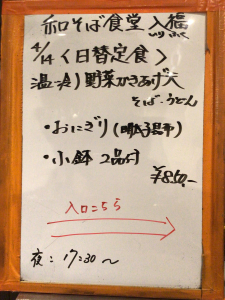 和そば食堂 入福
いり ふく
4/14〈日替定食〉
温・冷)野菜かきあげ天
そば・うどん
・おにぎり(明太子昆布)
・小鉢 2品付
¥850.-
入口こちら
夜:17:30〜